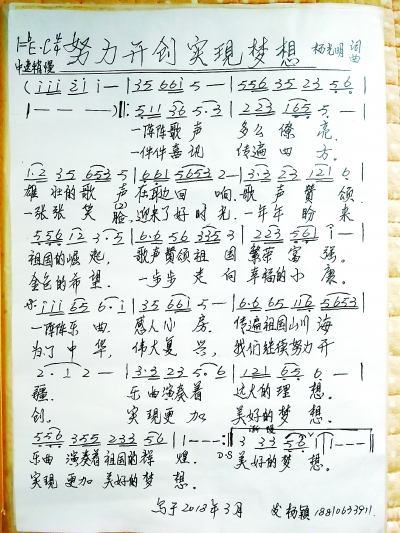 1=♭E.C 4/4 努力开创实現梦想 杨光明 词曲
中速稍慢
( i i i 2 i i — | 3 5 6 6 i 5 — | 5 5 6 3 5 2 3 5 6 |
1 — — — ) ‖: 5 1 1 3 6 5 · 3 | 2 2 3 1 6 5 5 — |
一阵阵歌声 多么僚亮.
一件件喜讯 传遍四方.
1 · 2 3 5 6 5 3 5 | 6 6 1 5 6 5 3 2 — | 3 · 3 2 3 1 2 1 6 |
雄壮的歌声在耿回响.歌声赞颂
一张张笑脸.迎来了好时光.一年年盼来
5 5 6 1 2 3 · 5 | 6 · 6 5 6 3 3 5 3 | 2 2 3 5 6 1 i — |
祖国的崛起, 歌声赞颂祖国繁荣富强。
金色的希望. 一步步走向幸福的小康。
i i i 6 5 6 · i | 3 5 6 6 i 5 — | 6 · 6 6 5 1 1 6 5 6 5 3 |
一阵阵乐曲. 感人心房. 传遍祖国山川海
为了中华, 伟大复兴, 我们继续努力开
2 · 1 2 — | 3 · 3 2 3 5 · 6 | 1 2 1 6 5 6 — |
疆. 乐曲演奏着 远大的理想.
创. 实现更加 美好的梦想.
5 5 6 3 5 5 2 3 3 5 6 | 1 — — — :‖ 3 3 3 5 6 | i — — — ‖
乐曲演奏着祖国的辉煌. D.S 美好的梦想.
实现更加美好的梦想.
写于2013年3月 杨颖 18810633911.